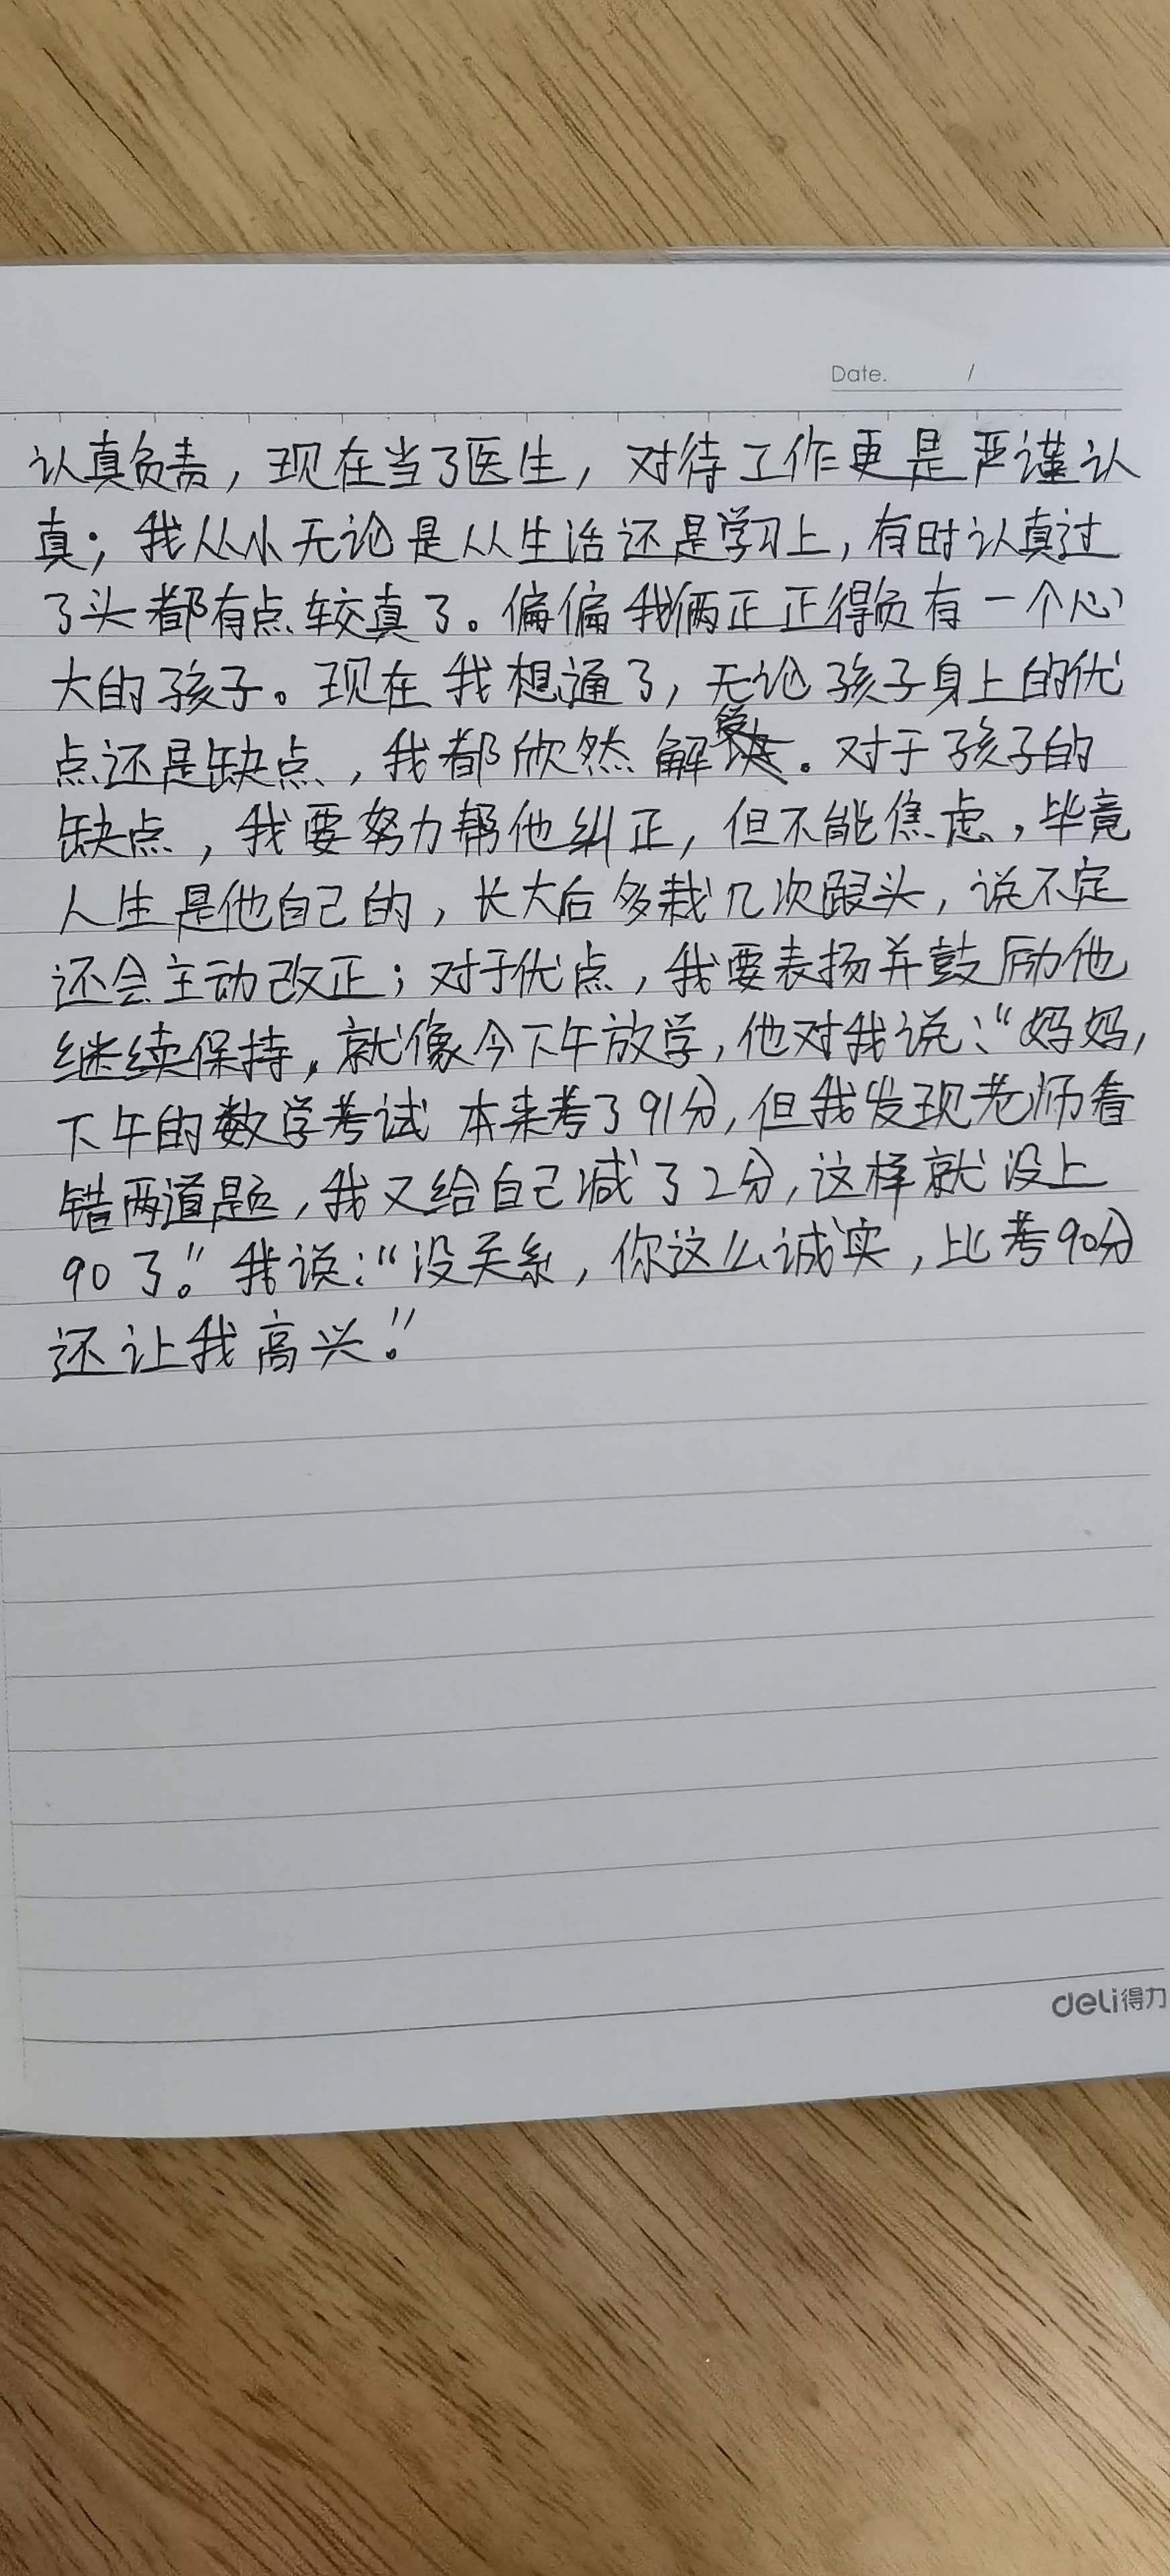 Date. /
认真负责，现在当了医生，对待工作更是严谨认
真；我从小无论是从生活还是学习上，有时认真过
了头都有点较真了。偏偏我俩正正得负有一个心
大的孩子。现在我想通了，无论孩子身上的优
点还是缺点，我都欣然解受。对于孩子的
缺点，我要努力帮他纠正，但不能焦虑，毕竟
人生是他自己的，长大后多栽几次跟头，说不定
还会主动改正；对于优点，我要表扬并鼓励他
继续保持。就像今下午放学，他对我说：“妈妈，
下午的数学考试本来考了91分，但我发现老师看
错两道题，我又给自己减了2分，这样就没上
90了。”我说：“没关系，你这么诚实，比考90分
还让我高兴。”
deli得力